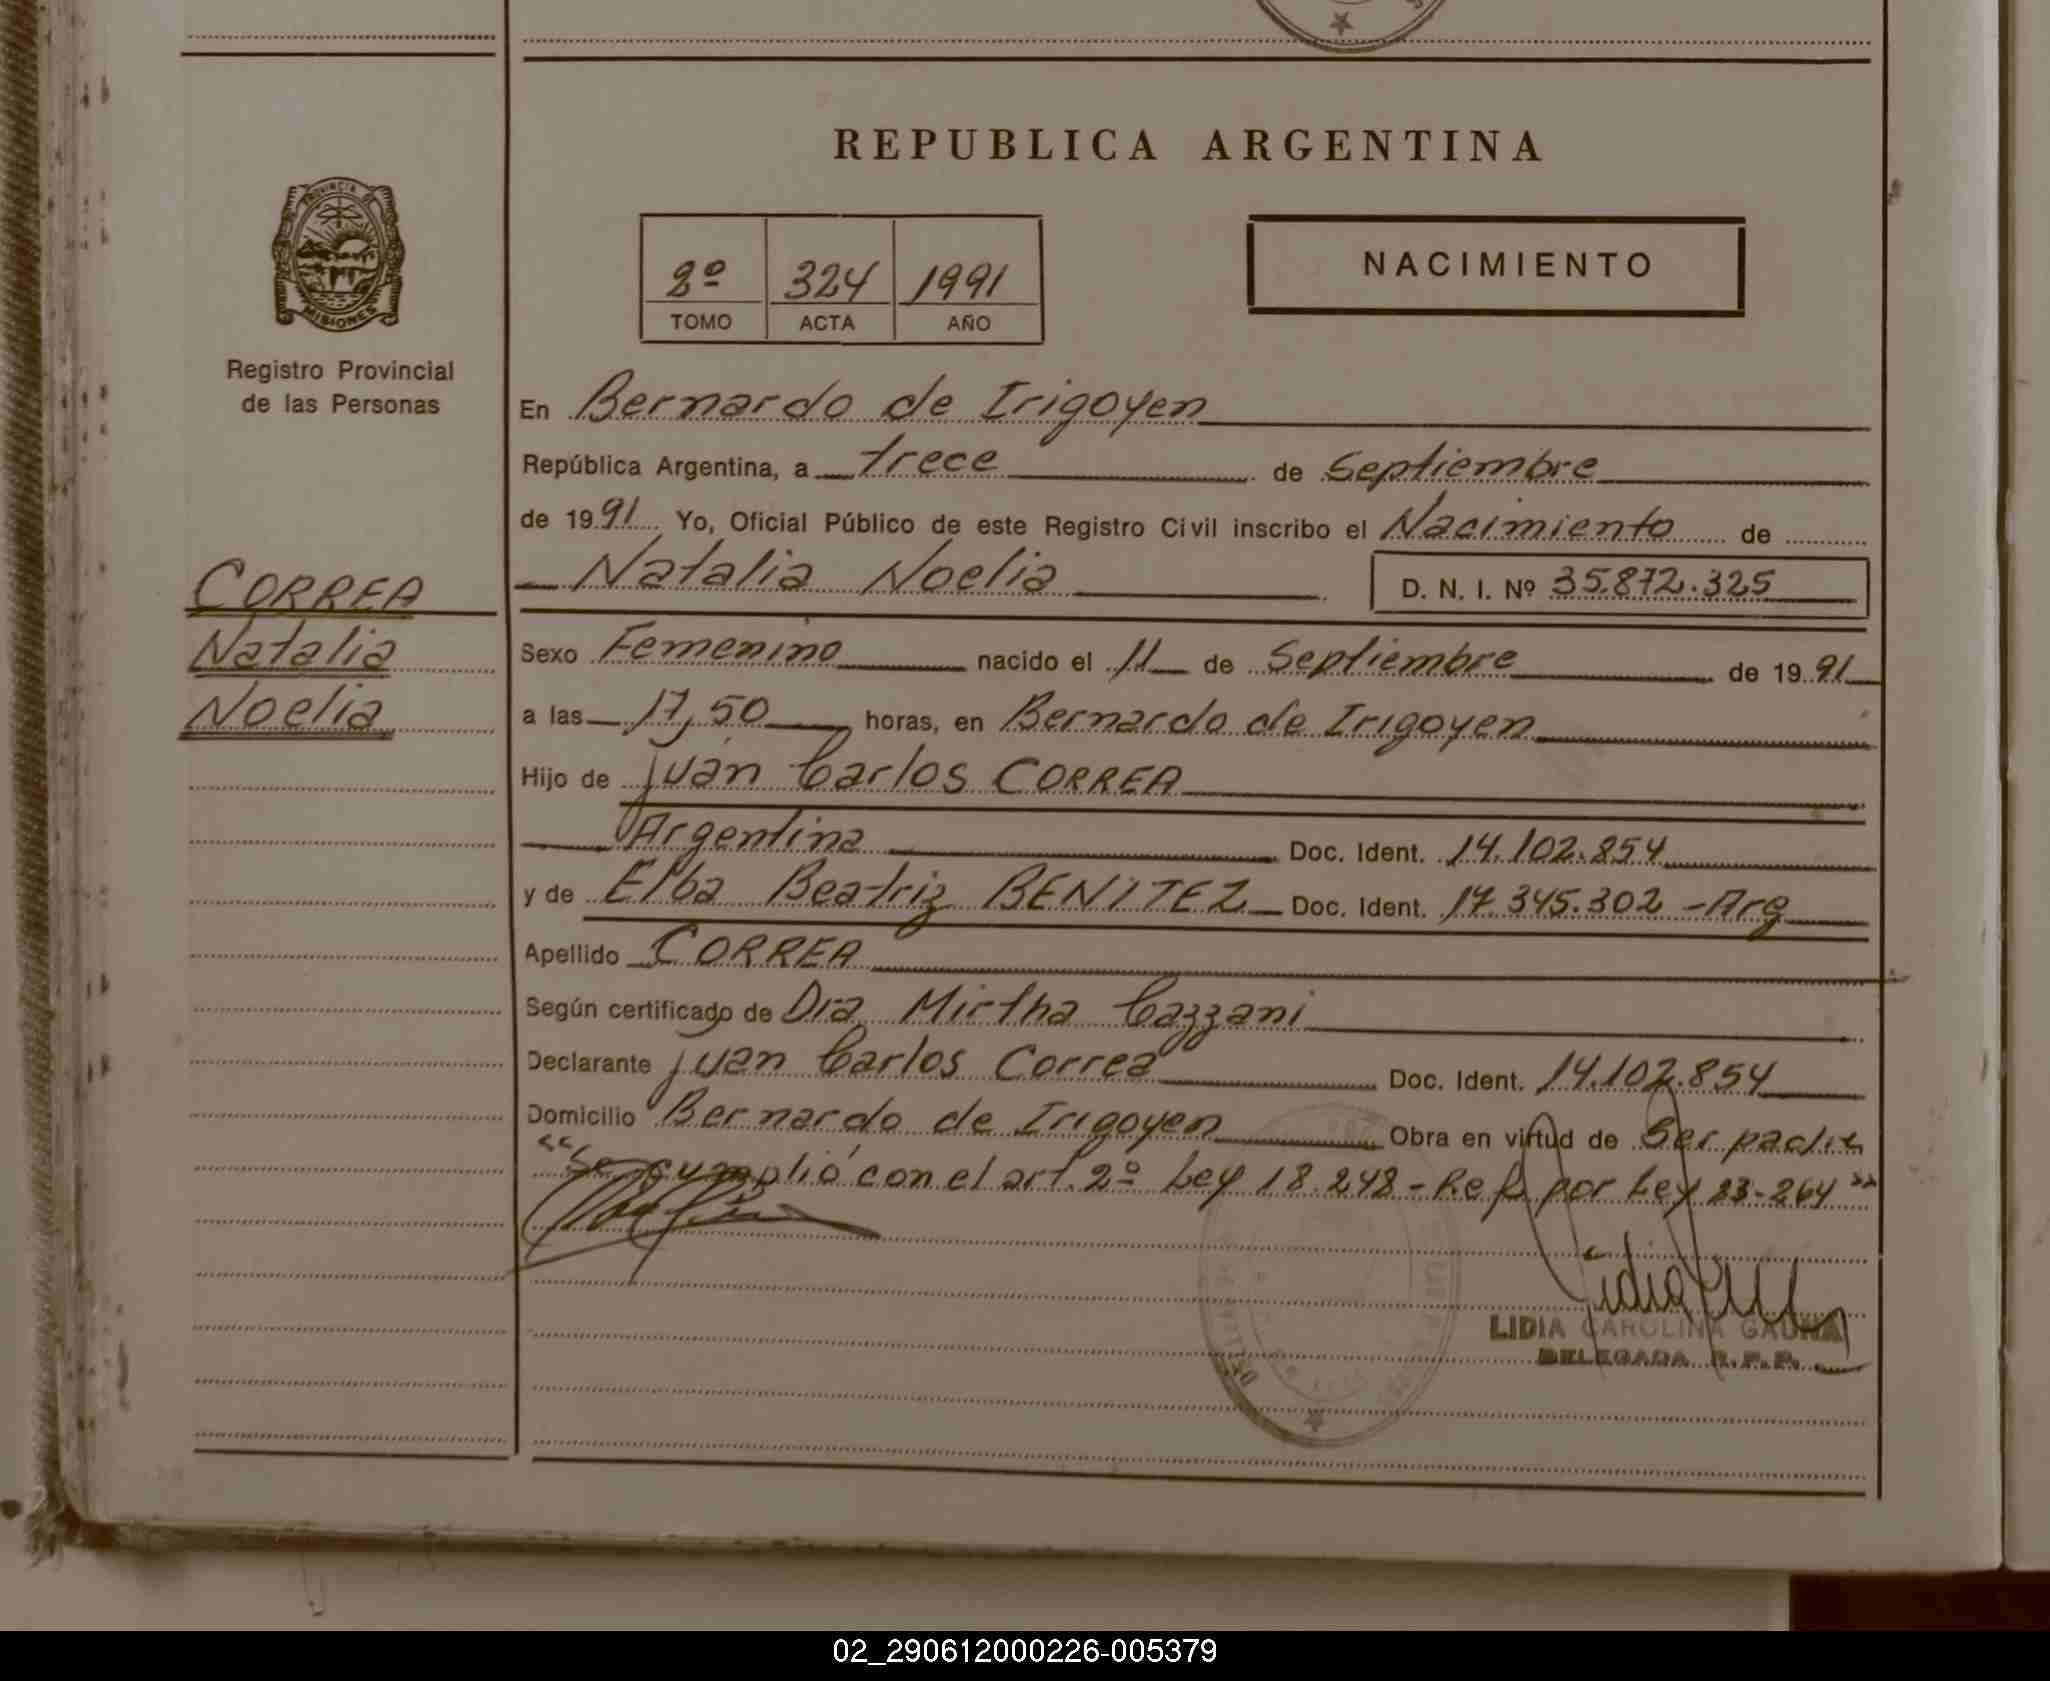 REPUBLICA ARGENTINA
PROVINCIA DE
MISIONES
Registro Provincial
de las Personas
2º 324 1991
TOMO ACTA AÑO
NACIMIENTO
En Bernardo de Irigoyen
República Argentina, a trece de Septiembre
de 1991 Yo, Oficial Público de este Registro Civil inscribo el Nacimiento de
CORREA
Natalia
Noelia
Natalia Noelia D. N. I. Nº 35.872.325
Sexo Femenino nacido el 11 de Septiembre de 1991
a las 17,50 horas, en Bernardo de Irigoyen
Hijo de Juan Carlos CORREA
Argentina Doc. Ident. 14.102.854
y de Elba Beatriz BENITEZ Doc. Ident. 17.345.302 - Arg
Apellido CORREA
Según certificado de Dra Mirtha Cazzani
Declarante Juan Carlos Correa Doc. Ident. 14.102.854
Domicilio Bernardo de Irigoyen Obra en virtud de Ser padre
"Se cumplió con el art. 2º Ley 18.248 - Ref. por Ley 23-264"
LIDIA CAROLINA GAUNA
DELEGADA R.P.P.
02_290612000226-005379